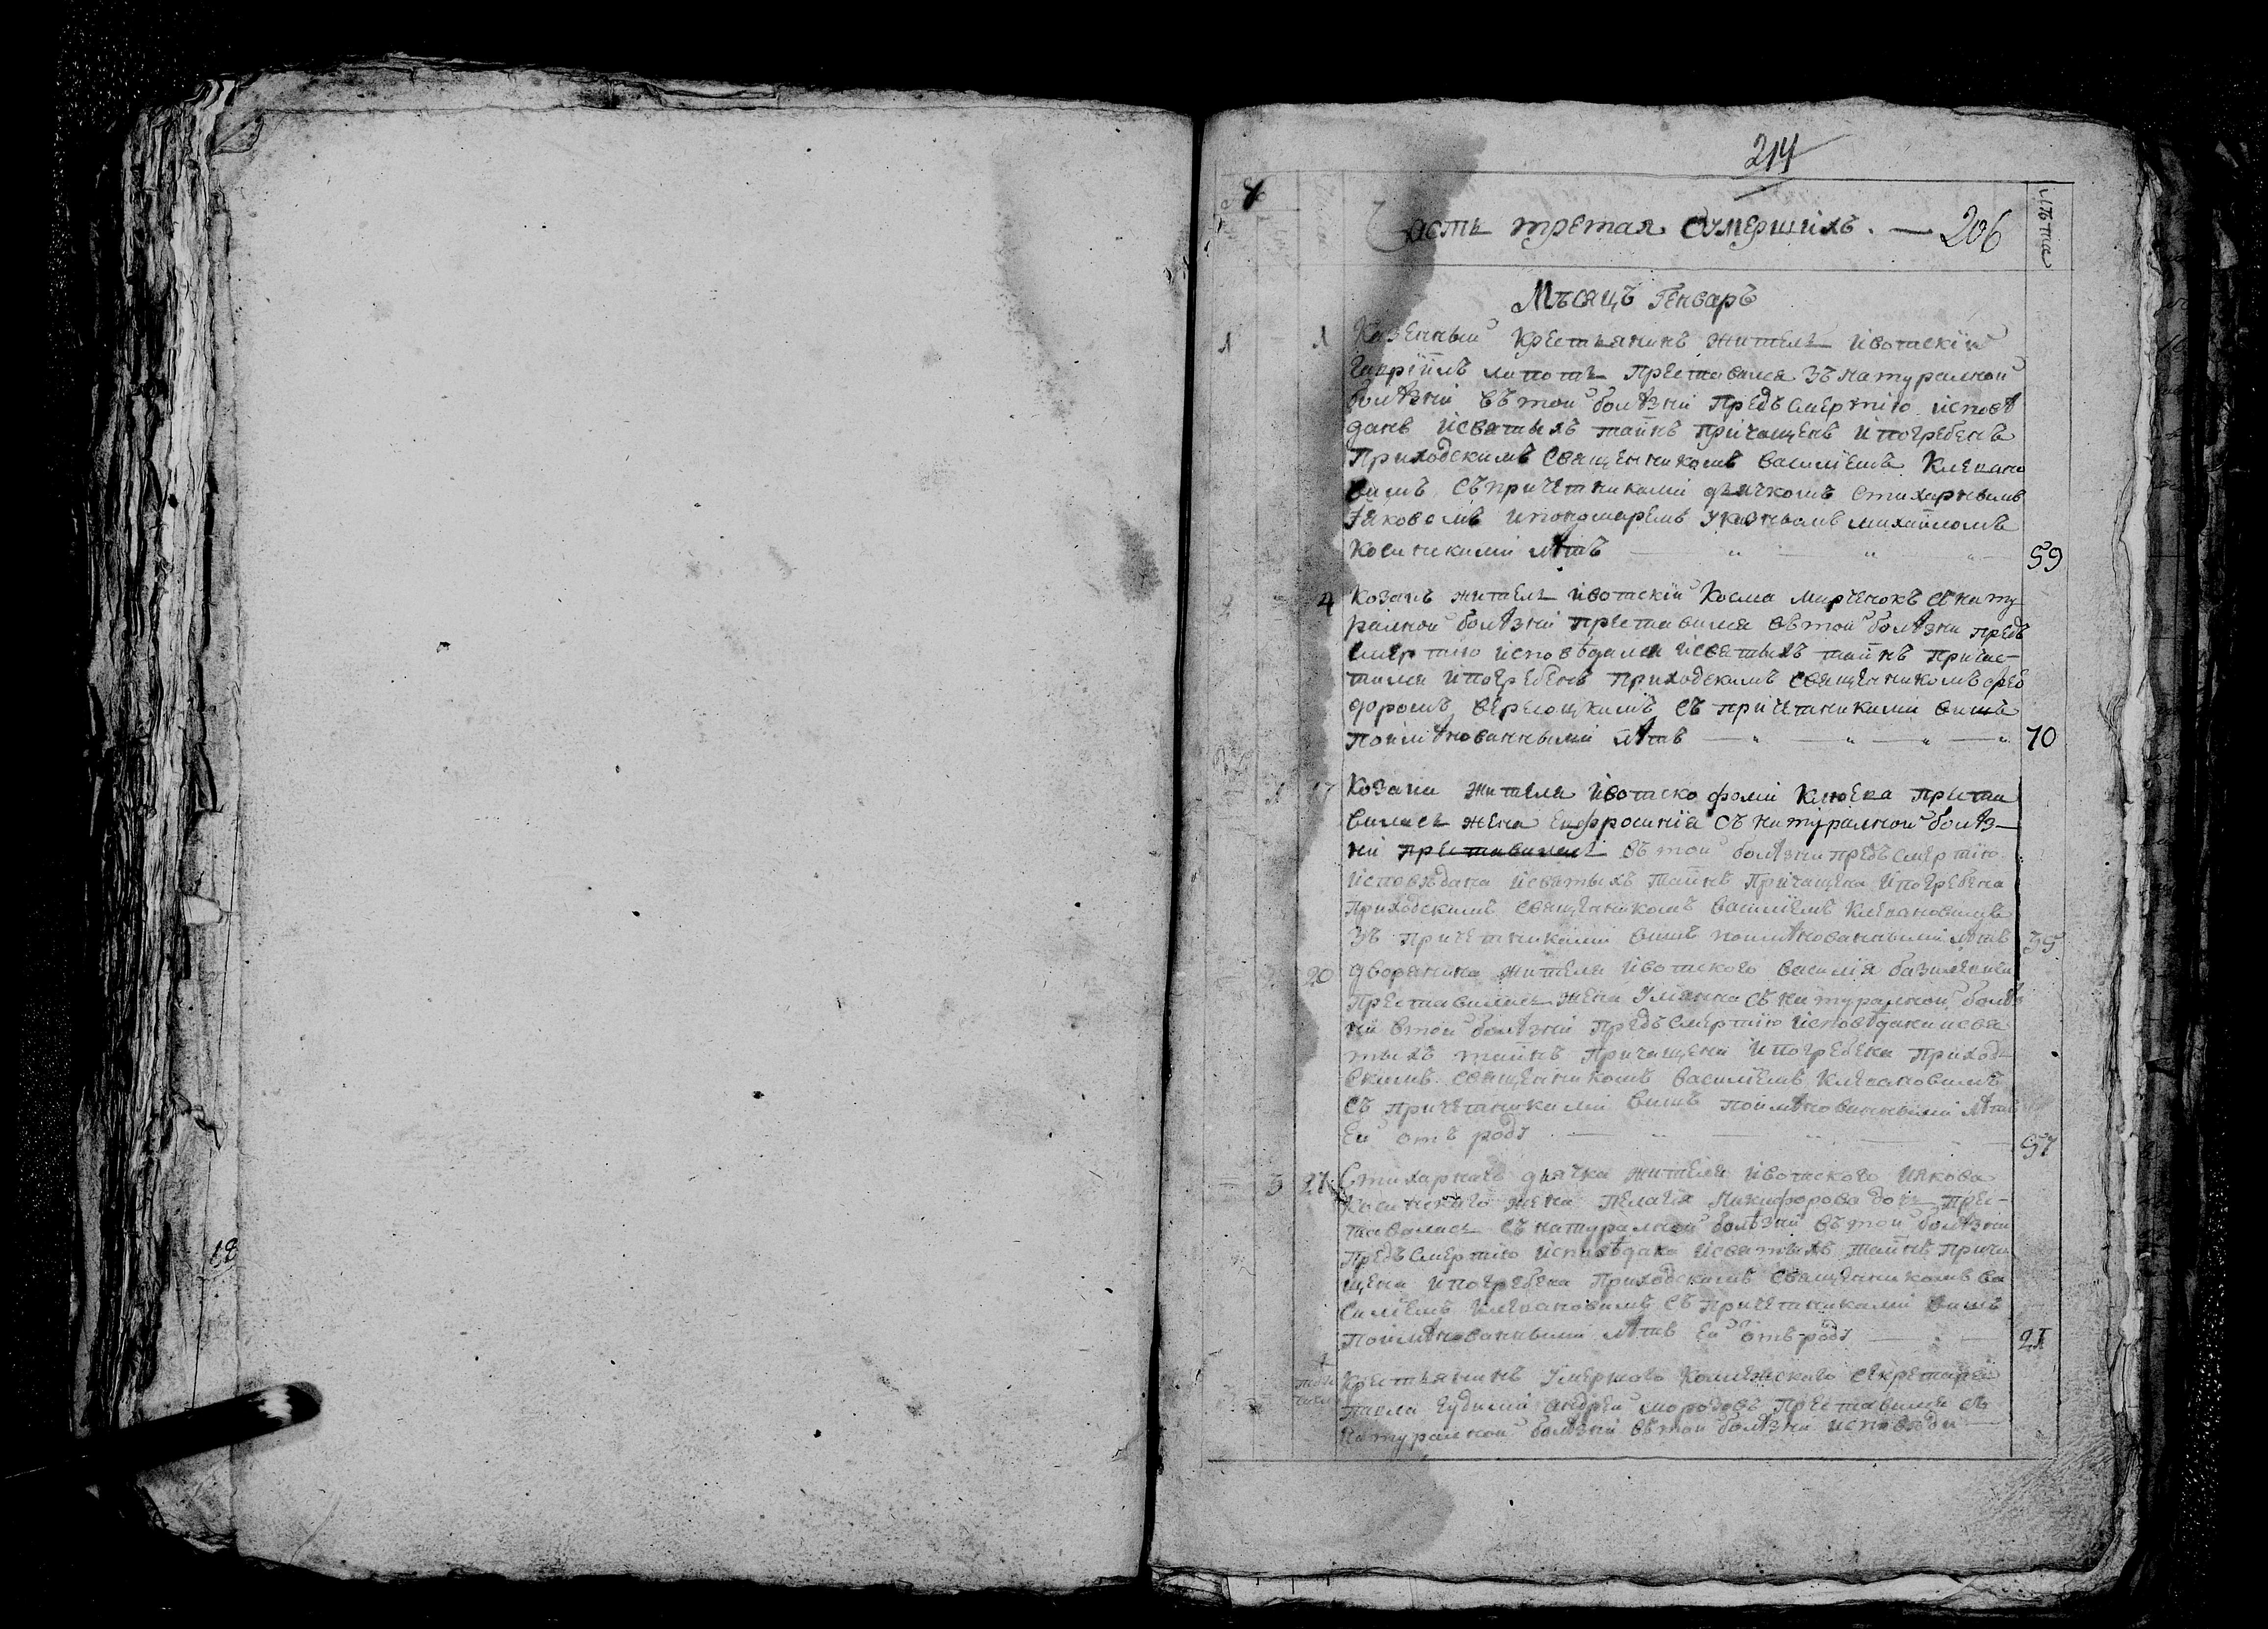 214
Часть третая оумершихъ. — 206
лѣта
Мѣсяцъ Генваръ
1 1 Казенный крестьянинъ житель ивотскїй
Гаврїилъ преставился зъ натуралной
болѣзни въ той болѣзни предъ смертїю исповѣ
данъ исвятыхъ таинъ причащенъ ипогребенъ
Приходскимъ священникомъ василїемъ
вимъ съ причетниками дьячкомъ стихарнымъ
Іяковомъ ипономаремъ указнымъ михаиломъ
Косинскими лѣтъ 59
4 Козакъ житель ивотскїй Косма Марченокъ съ нату
ралной болѣзни преставился въ той болѣзни предъ
смертїю исповѣдался исвятыхъ таинъ причас-
тился ипогребенъ приходскимъ священникомъ фео
доромъ съ причетниками више
поимѣнованными лѣтъ 70
17 Козака жителя ивотско фоми Клюева преста
вилась жена евфросинїя съ натуралной болѣз-
ни преставилась въ той болѣзни предъ смертїю
исповѣдана исвятыхъ таинъ причащена ипогребена
приходскимъ священникомъ василїемъ
зъ причетниками више поимѣнованными лѣтъ 35
20 дворянина жителя ивотского василїя
преставилась жена Улїянна съ натуралной болѣз
ни втой болѣзни предъ смертїю исповѣдана исвя
тыхъ таинъ причащена ипогребена приход
скимъ священникомъ василїемъ
съ причетниками више поимѣнованными лѣтъ
Ей отъ роду 57
3 27 Стихарного дьячка жителя ивотского иякова
Косинского жена пелагїя Никифорова дочь прес-
тавилась съ натуралной болѣзни въ той болѣзни
предъ смертїю исповѣдана исвятыхъ таинъ прича
щена ипогребена приходскимъ священникомъ ва
силїемъ съ причетниками више
поимѣнованными лѣтъ Ей отъ роду 21
Крестьянинъ умершого Коллежского секретаря
павла андрей морозовъ преставился съ
натуралной болѣзни въ той болѣзни исповѣда
18